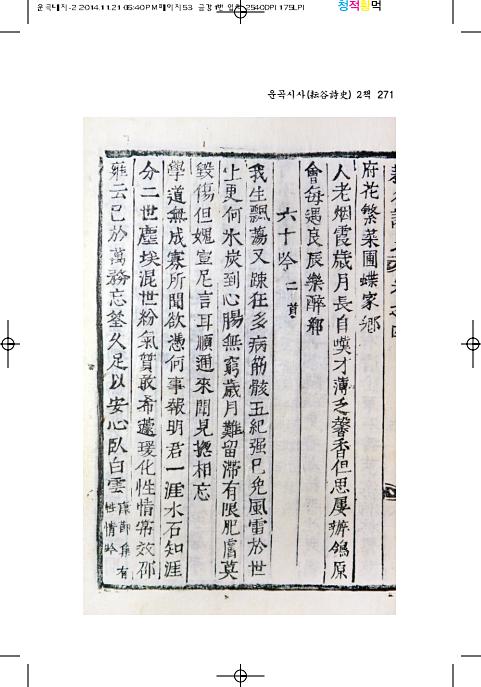 운곡대지-2 2014.11.21 05:40 PM 페이지53
2540DPI 175LPI
청적황먹
운곡시사(耘谷詩史) 2책 271
府花繁菜圃蝶家鄕
人老烟霞歲月長自嘆才薄乏馨香但思屢辦鴒原
會每遇良辰樂醉鄕
六十吟 二首
我生飄蕩又踈狂多病筋骸五紀强已免風雷於世
上更何氷炭到心腸無窮歲月難留滯有限肥膚莫
毀傷但愧宣尼言耳順邇來聞見摠相忘
學道無成寡所聞欲憑何事報明君一涯水石知涯
分二世塵埃混世紛氣質敢希蘧瑗化性情常效邵
雍云已於萬務忘筌久足以安心臥白雲 康節集有
性情吟